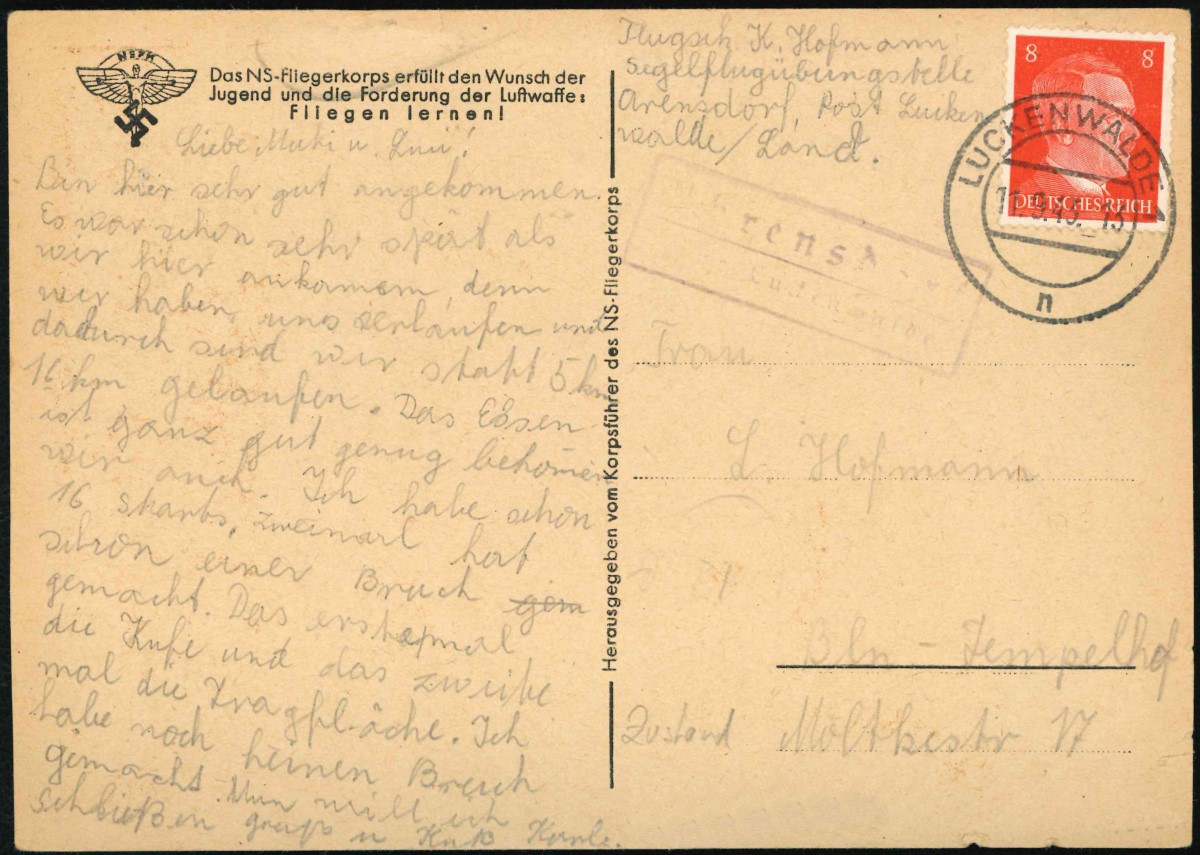 NSFK
Das NS-Fliegerkorps erfüllt den Wunsch der
Jugend und die Forderung der Luftwaffe:
Fliegen lernen!
Liebe Mutti u.
Bin hier sehr gut angekommen.
Es war schon sehr spät als
wir hier ankamem, denn
wir haben uns verlaufen und
dadurch sind wir statt 5 km
16 km gelaufen. Das Essen
ist ganz gut genug bekomen
wir auch. Ich habe schon
16 starts, zweimal hat
schon einer Bruch gem
gemacht. Das erstemal
die Kufe und das zweite
mal die Tragfläche. Ich
habe noch keinen Bruch
gemacht. Nun will ich
schließen gruß u Kuß Karle.
Herausgegeben vom Korpsführer des NS-Fliegerkorps
K. Hofmann
Segelflugübungstelle
Arensdorf, Post Lucken
walde/Land.
8 8
DEUTSCHES REICH
LUCKENWALDE 1
13
n
Frau
L. Hofmann
Bln-Tempelhof
Zustand Moltkestr 17